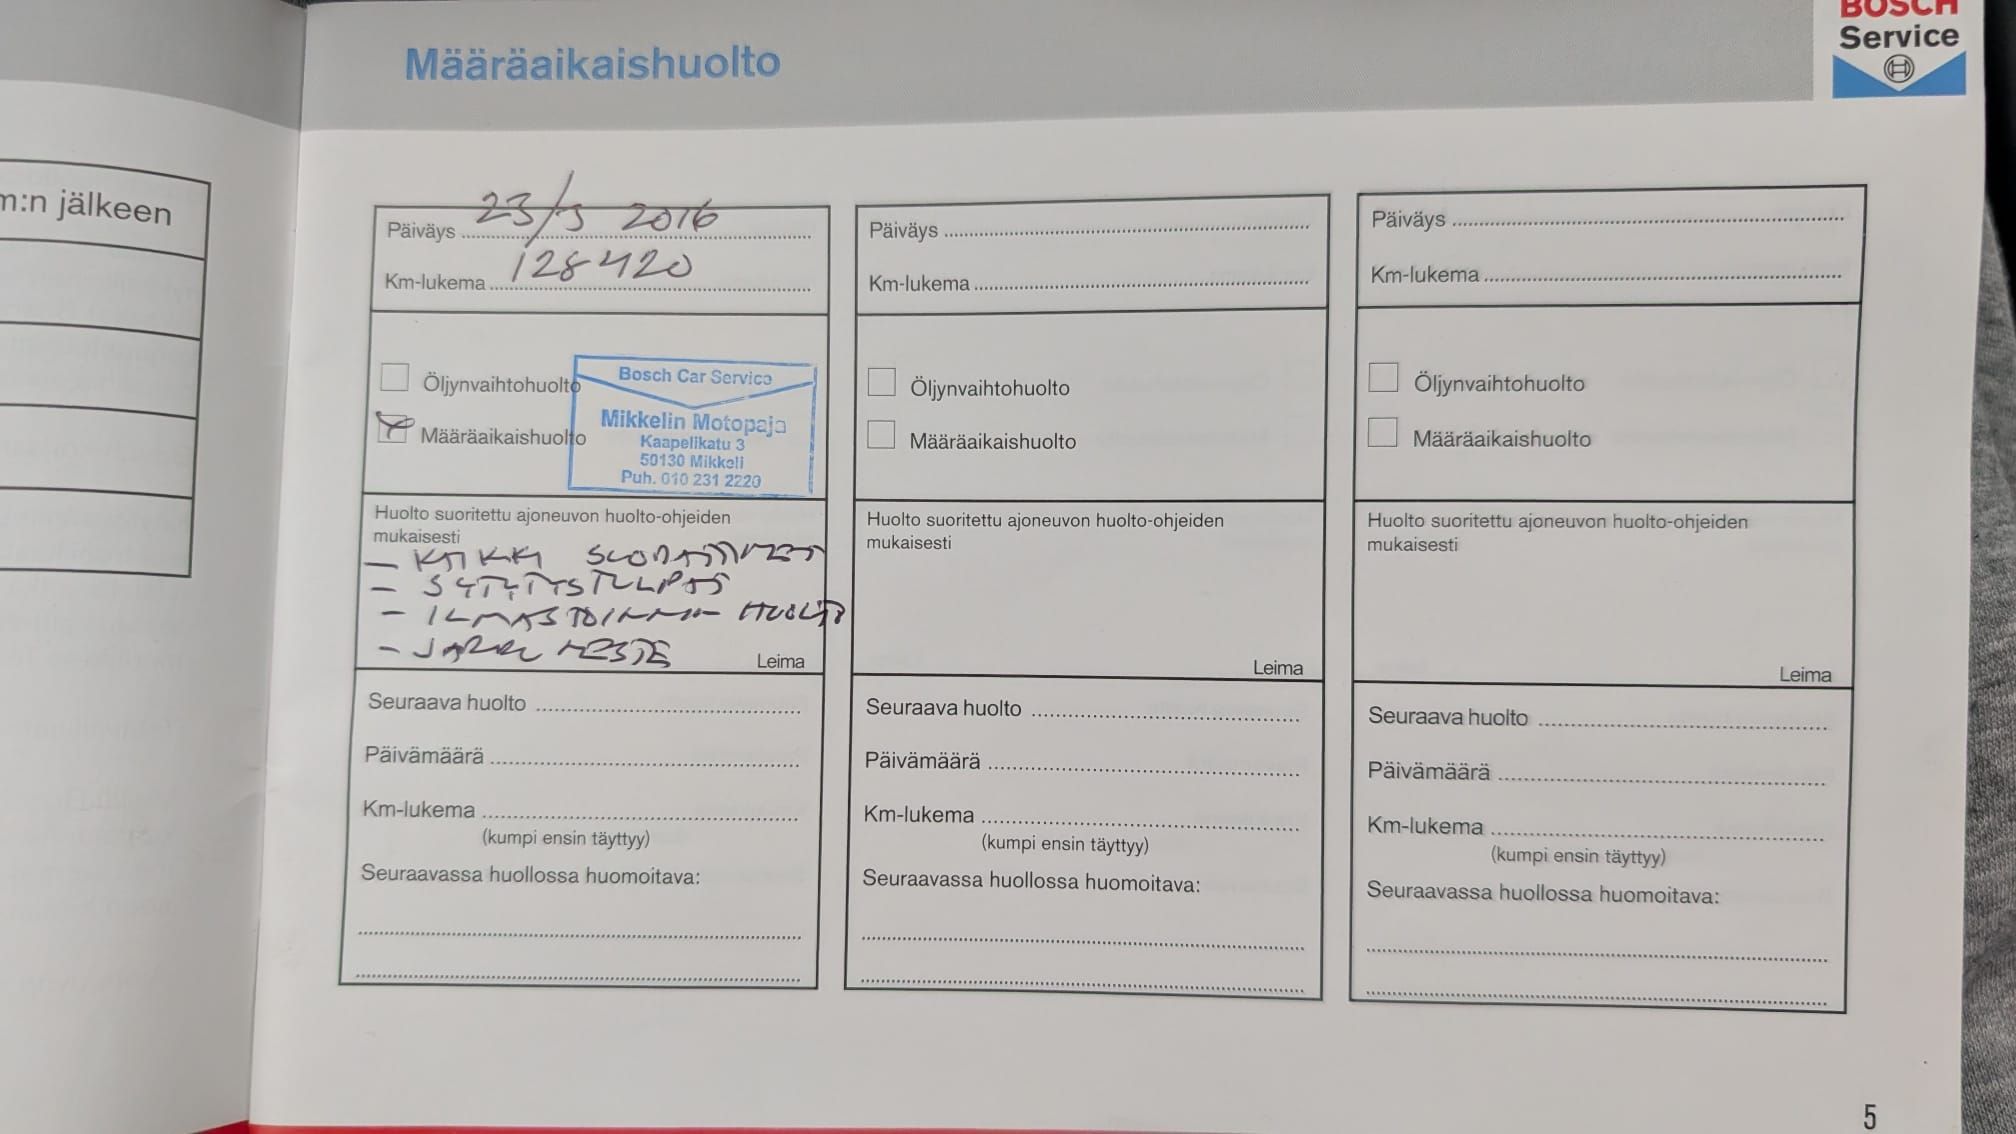 BOSCH
Service
Määräaikaishuolto
m:n jälkeen
Päiväys 23/5 2016
Km-lukema 128420
Öljynvaihtohuolto
Määräaikaishuolto
Bosch Car Service
Mikkelin Motopaja
Kaapelikatu 3
50130 Mikkeli
Puh. 010 231 2220
Huolto suoritettu ajoneuvon huolto-ohjeiden
mukaisesti
- KAIKKI SUODATTIMET
- SYTYTYSTULPAT
- ILMASTOINNIN HUOLTO
- JARRUNESTE
Leima
Seuraava huolto
Päivämäärä
Km-lukema
(kumpi ensin täyttyy)
Seuraavassa huollossa huomoitava:
Päiväys
Km-lukema
Öljynvaihtohuolto
Määräaikaishuolto
Huolto suoritettu ajoneuvon huolto-ohjeiden
mukaisesti
Leima
Seuraava huolto
Päivämäärä
Km-lukema
(kumpi ensin täyttyy)
Seuraavassa huollossa huomoitava:
Päiväys
Km-lukema
Öljynvaihtohuolto
Määräaikaishuolto
Huolto suoritettu ajoneuvon huolto-ohjeiden
mukaisesti
Leima
Seuraava huolto
Päivämäärä
Km-lukema
(kumpi ensin täyttyy)
Seuraavassa huollossa huomoitava:
5